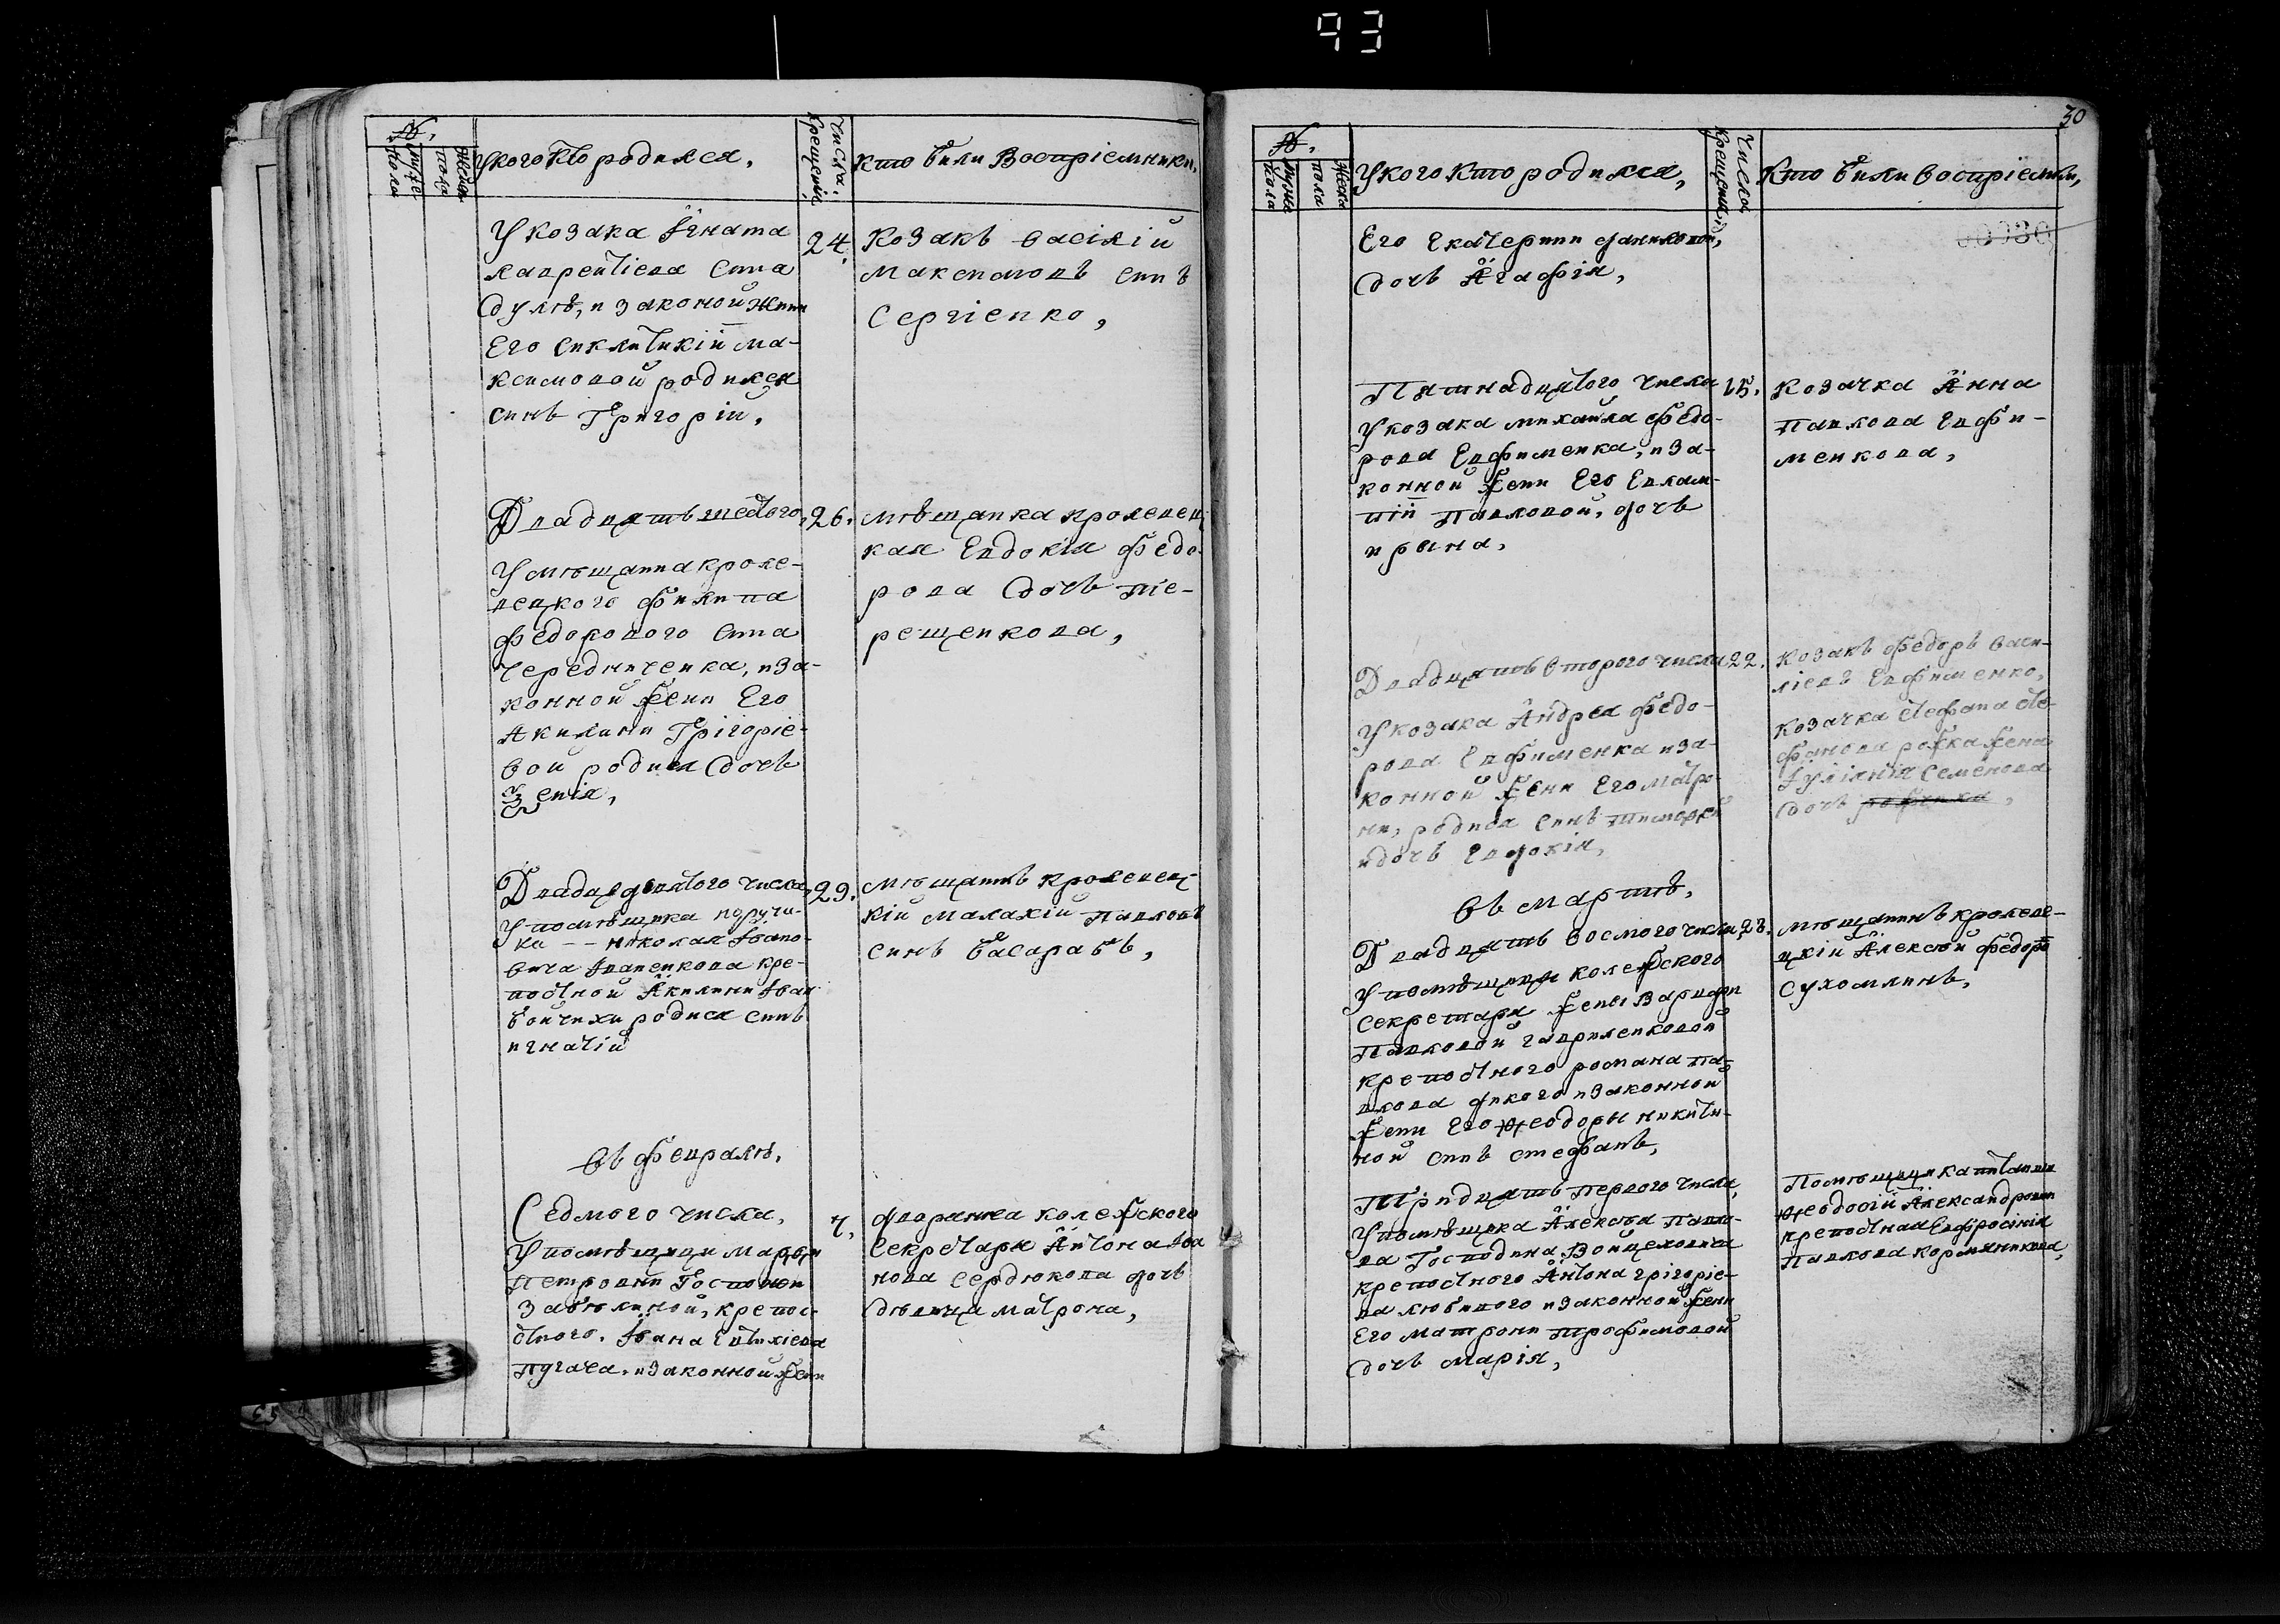 93
№.
муже
пола
женск
пола
У кого Кто родился,
Числа
крещеній
Кто били Воспріемники,
У козака Ігната
лаврентіева сина
Дулѣ, и законой жени
Его Синклитикіи ма-
ксимовой родился
синъ Григорій,
24.
Козакъ василій
максимовъ синъ
Сергіенко,
Двадцять шестого,
У мещанина кроле-
вецкого филипа
федорового сина
Чередниченка, и за-
конной жени Его
Акилини Григоріе-
вой родися дочь
26.
мѣщанка кролевец-
кая Евдокія федо-
рова дочь те-
рещенкова,
Двадцедевятого числа,
У помѣщика поручи-
ка -- николая Івано-
вича Іваненкова кре-
постной Акилини Іван
бойчихи родися синъ
игнатій
29.
мѣщанинъ кролевец-
кій малахій Павловъ
синъ басарабъ,
Въ февралѣ,
Седмого числа,
У помѣщици марфи
Петровни Госпожи
Забѣлиной, крепос-
тного Івана Евтихіева
пугача, и законной жени
7.
дворянка колежского
Секретаря Антона Іва
нова Сердюкова дочь
дѣвица матрона,
30
№.
мужеска
пола
женска
пола
У кого Кто родился,
Числа
крещеній
Кто били воспріемники,
00030
Его Екатерини даниловой,
дочь Агафія,
Пятнадцятого числа
У козака михайла федо-
рова Евфименка, и за-
конной жени Его Евлам-
піи Павловой, дочь
ирина,
15.
Козачка Анна
Павлова Евфи-
менкова,
Двадцять второго числа
У козака Андрея федо-
рова Евфименка и за-
конной жени Его матро-
ни, родися синъ тимофей
и дочь Евдокія,
22.
Козакъ федоръ васи-
ліевъ Евфименко,
Козачка стефана сте-
фанова рожка жена
Іуліянія Семенова
дочь
Въ мартѣ,
Двадцять восмого числа
У помѣщици колежского
Секретаря жены Варвары
Павловой гавриленковой
крепостного романа па-
влова дикого и законной
жени Его Ѳеодоры никити-
ной синъ стефанъ,
28.
мѣщанинъ кролеве-
цкій Алексѣй федоровъ
Сухомлинъ,
Тридцять первого числа,
У помѣщика Алексѣя Павло-
ва Господина Войцеховича
крепостного Антона григоріе-
ва любивого и законной жени
Его матрони трофимовой
дочь марія,
Помѣщици капитанши
Ѳеодосіи Александровни
крепостная Евфросинія
Павлова